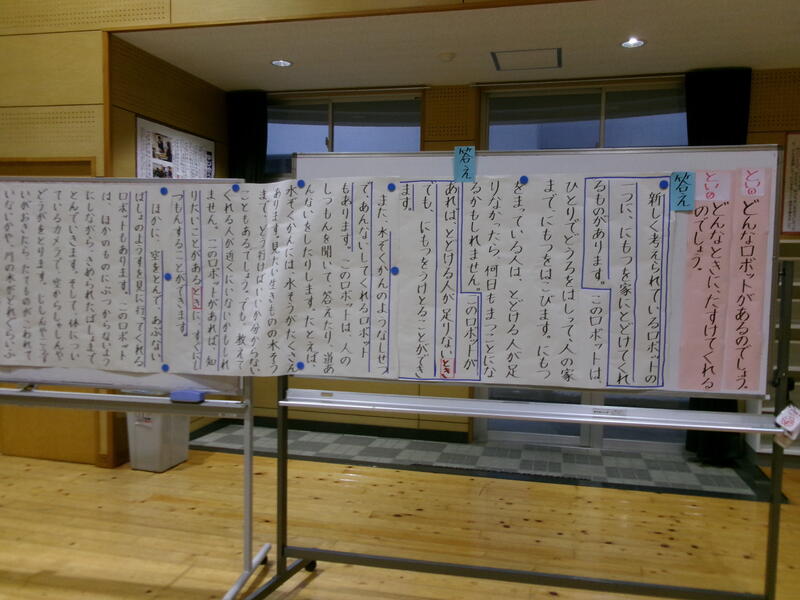 とい① どんなロボットがあるのでしょう。
とい② どんなときに、たすけてくれる
のでしょう。
答え
新しく考えられているロボットの
一つに、にもつを家にとどけてくれ
るものがあります。このロボットは、
ひとりでどうろをはしって、人の家
まで、にもつをはこびます。にもつ
をまっている人は、とどける人が足
りなかったら、何日もまつことにな
るかもしれません。このロボットが
答え
あれば、とどける人が足りないとき
でも、にもつをうけとることができ
ます。
また、水ぞくかんのようなしせつ
で、あんないしてくれるロボット
もあります。このロボットは、人の
しつもんを聞いて、答えたり、道あ
んないをしたりします。たとえば、
水ぞくかんには、水そうがたくさん
あります。見たい生きものの水そう
まで、どう行けばいいか分からない
こともあるでしょう。でも、教えて
くれる人が近くにいないかもしれ
ません。このロボットがあれば、知
りたいことがあるときに、すぐにし
つもんすることができます。
ほかに、空をとんで、あぶない
ばしょのようすを見に行ってくれる
ロボットもあります。このロボット
は、ほかのものにぶつからないよう
にしながら、きめられたばしょまで
とんでいきます。そして、体につい
ているカメラで、空からしゃしんや
どうがをとります。じしんやこう